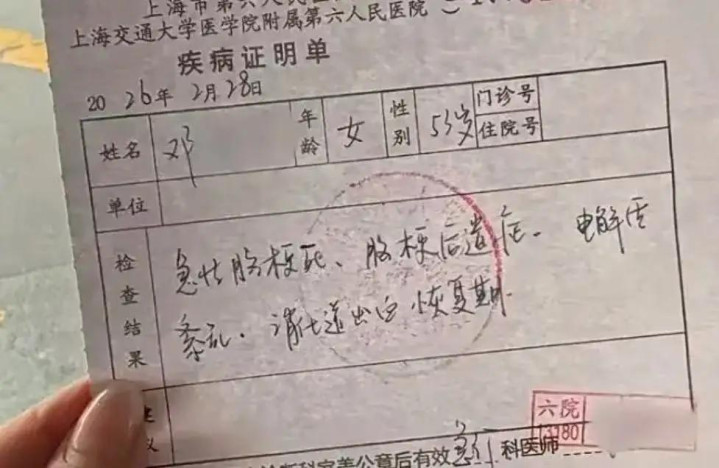 上海市第六人民医
上海交通大学医学院附属第六人民医院
疾病证明单
2026年2月28日
姓名 邓 年龄 女 性别 53岁 门诊号
住院号
单位
检查结果 急性脑梗死、脑梗后遗症、电解质
紊乱、消化道出血恢复期
科完善公章后有效 急 科医师
六院
13180